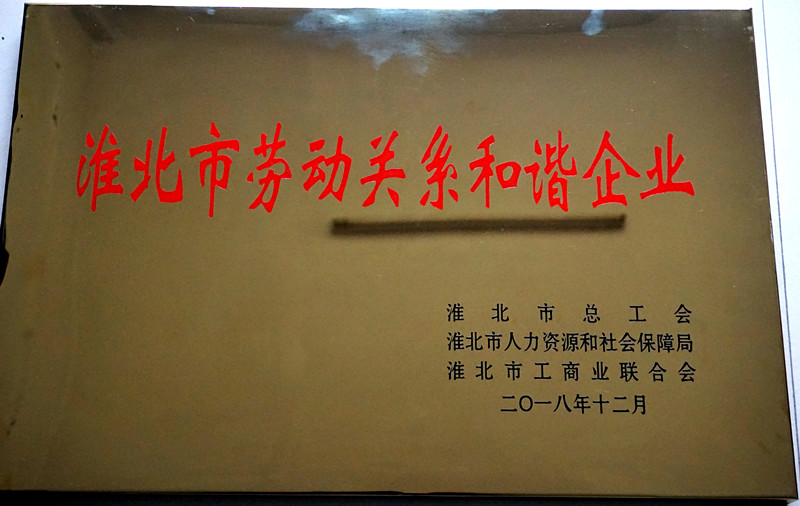 淮北市劳动关系和谐企业
淮北市总工会
淮北市人力资源和社会保障局
淮北市工商业联合会
二〇一八年十二月